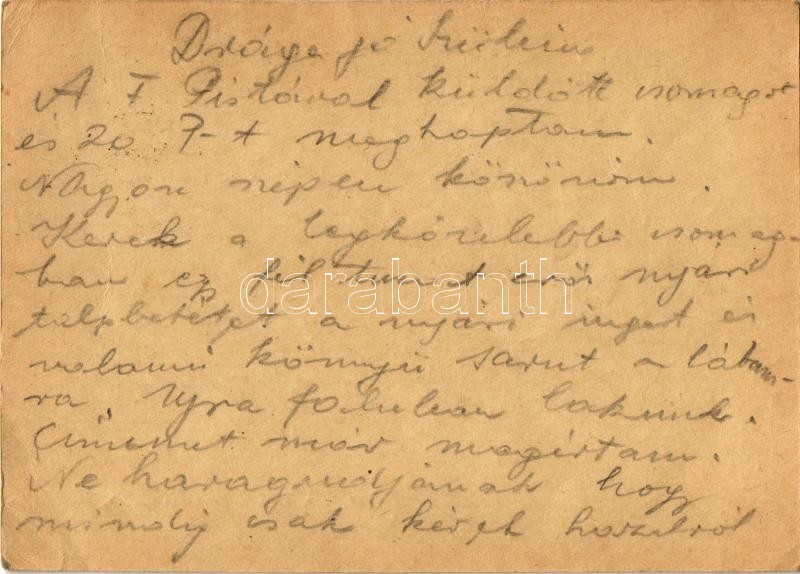 Drága jó Szüleim
A F Pistával küldött csomagot
és 20 P-t megkaptam.
Nagyon szépen köszönöm.
Kérek a legközelebbi csomag-
ban egy fél tucat erős nyári
talpbetétet a nyári inget és
valami könnyű sarut a lábam-
ra Ujra faluban lakunk.
Címemet már megírtam.
Ne haragudjanak hogy
mindig csak kérek hazulról
darabanth